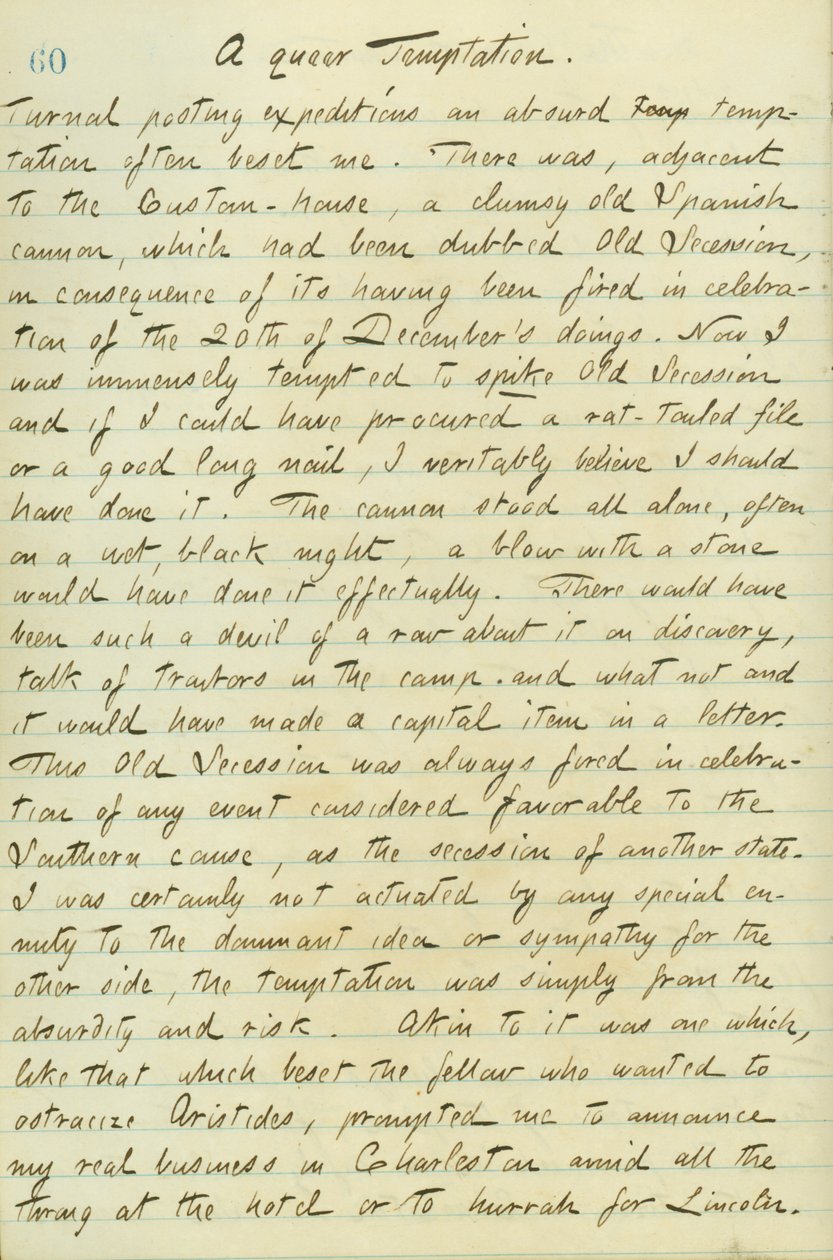 60
A queer Temptation.
turnal posting expeditions an absurd Temp temp-
tation often beset me. There was, adjacent
to the Custom-house, a clumsy old Spanish
cannon, which had been dubbed Old Secession,
in consequence of its having been fired in celebra-
tion of the 20th of December's doings. Now I
was immensely tempted to spike Old Secession
and if I could have procured a rat-tailed file
or a good long nail, I veritably believe I should
have done it. The cannon stood all alone, often
on a wet, black night, a blow with a stone
would have done it effectually. There would have
been such a devil of a row about it on discovery,
talk of traitors in the camp. and what not and
it would have made a capital item in a letter.
This Old Secession was always fired in celebra-
tion of any event considered favorable to the
Southern cause, as the secession of another state.
I was certainly not actuated by any special en-
mity to the dominant idea or sympathy for the
other side, the temptation was simply from the
absurdity and risk. Akin to it was one which,
like that which beset the fellow who wanted to
ostracize Aristides, prompted me to announce
my real business in Charleston amid all the
throng at the hotel or to hurrah for Lincoln.